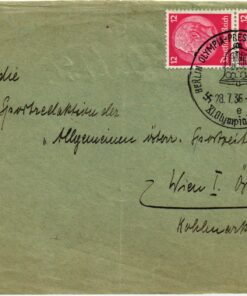 12
12
Deutsches Reich
BERLIN OLYMPIA-PRES
28.7.36-
e
XI. Olympia
die
Sportredaktion der
„Allgemeinen österr. Sportzeit
Wien I.
Kohlmark